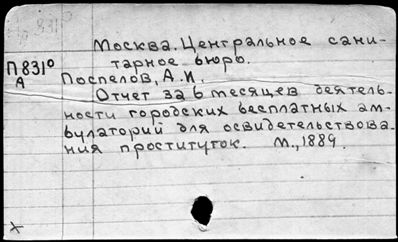 Москва. Центральное сани-
тарное бюро.
П831⁰
А
Поспелов, А.И.
Отчет за 6 месяцев деятель-
ности городских бесплатных ам-
булаторий для освидетельствова-
ния проституток. М., 1889.
х